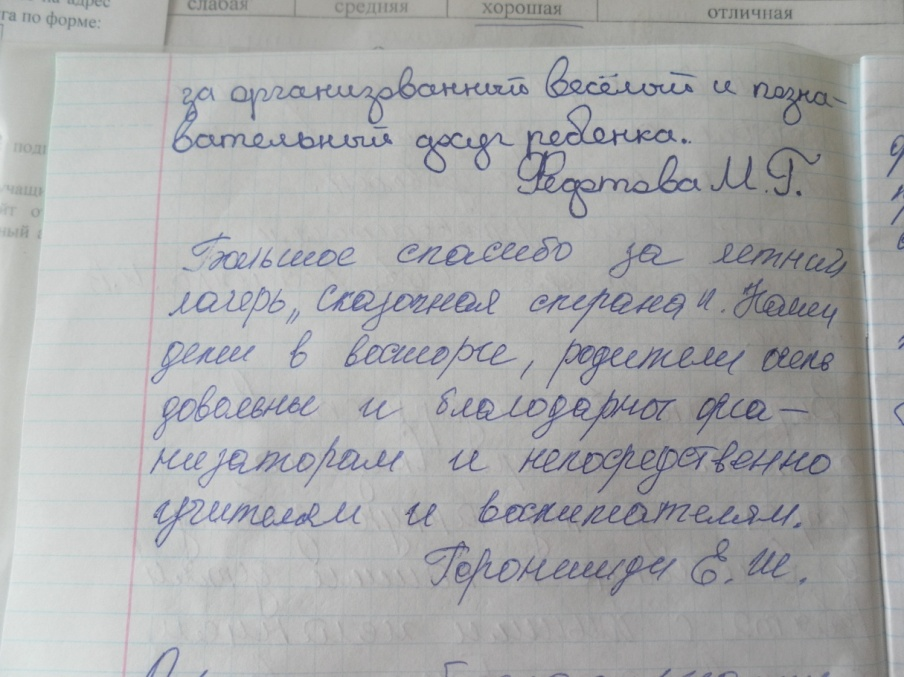 на адрес
га по форме:
слабая средняя хорошая отличная
за организованный весёлый и позна-
вательный досуг ребенка.
Федотова М.Г.
Большое спасибо за летний
лагерь „Сказочная страна". Наши
дети в восторге, родители очень
довольны и благодарны орга-
низаторам и непосредственно
учителям и воспитателям.